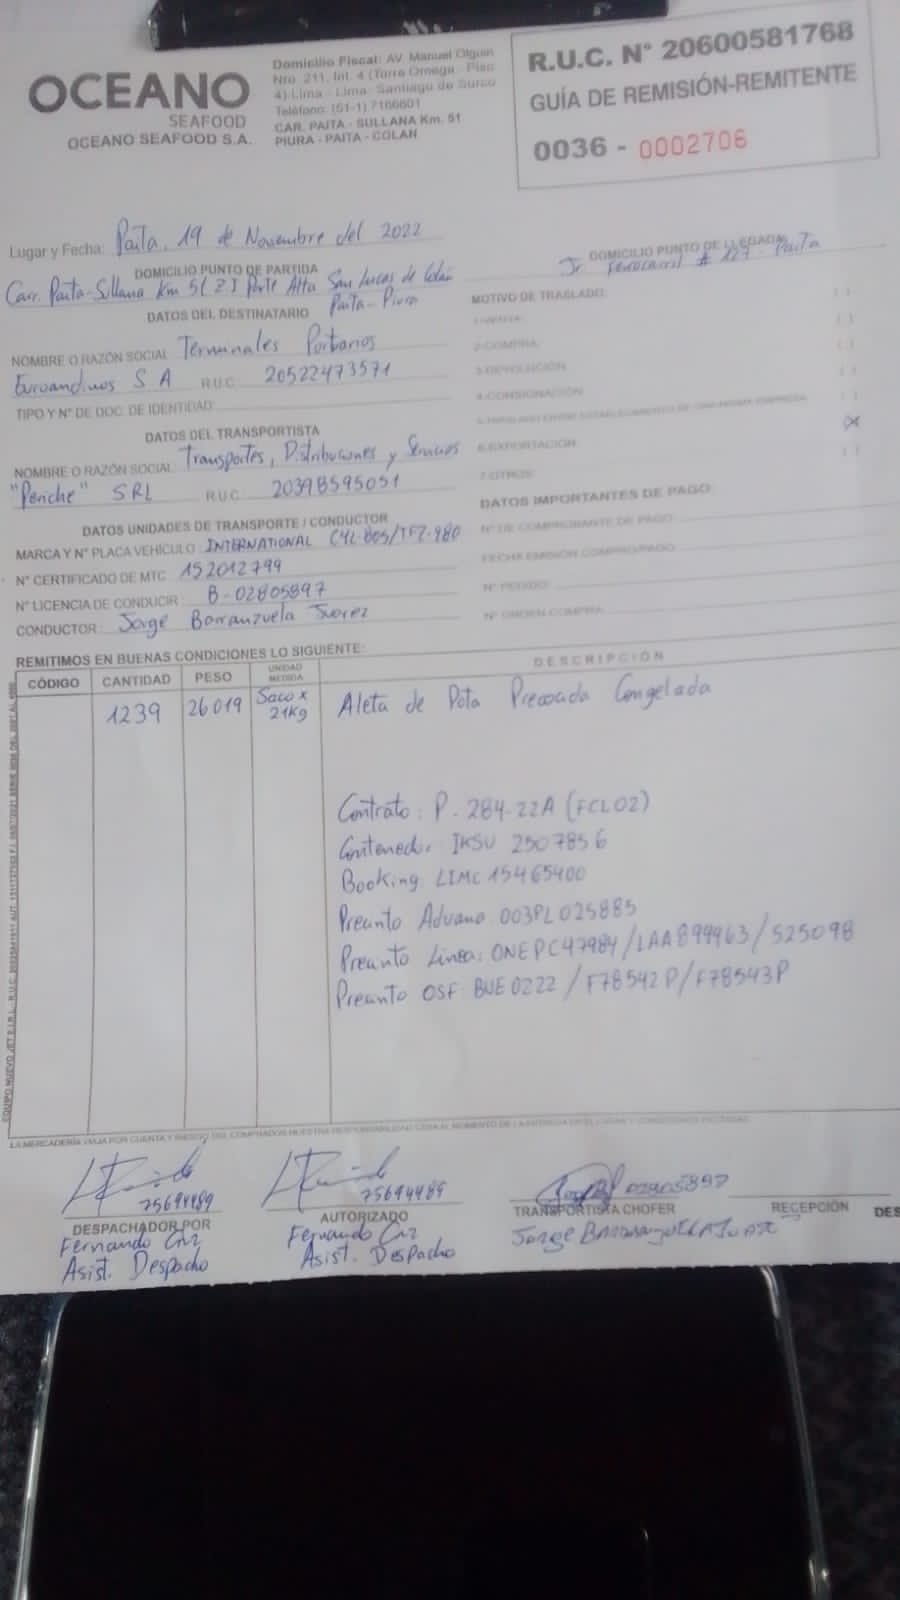 OCEANO
SEAFOOD
OCEANO SEAFOOD S.A.
Domicilio Fiscal: AV. Manuel Olguin
Nro. 211, Int. 4 (Torre Omega - Piso
4)-Lima - Lima- Santiago de Surco
Teléfono: (51-1) 7166601
CAR. PAITA - SULLANA Km. 51
PIURA - PAITA - COLAN
R.U.C. N° 20600581768
GUÍA DE REMISIÓN-REMITENTE
0036 - 0002706
Lugar y Fecha: Paita, 19 de Noviembre del 2022
DOMICILIO PUNTO DE PARTIDA
Carr. Paita-Sullana Km 51 Parte Alta San Lucas de Colán
Paita-Piura
DOMICILIO PUNTO DE LLEGADA
Jr # 127 - Paita
DATOS DEL DESTINATARIO
NOMBRE O RAZÓN SOCIAL Terminales Portuarios
Euroandinos S A R.U.C. 20522473571
TIPO Y N° DE DOC. DE IDENTIDAD:
DATOS DEL TRANSPORTISTA
NOMBRE O RAZÓN SOCIAL Transportes, Distribuciones y Servicios
"Periche" SRL R.U.C. 20398595051
DATOS UNIDADES DE TRANSPORTE / CONDUCTOR
MARCA Y N° PLACA VEHÍCULO : INTERNATIONAL C4L-805/TFZ-980
N° CERTIFICADO DE MTC : 152012799
N° LICENCIA DE CONDUCIR : B-02805897
CONDUCTOR : Jorge Barranzuela Juarez
MOTIVO DE TRASLADO:
1-VENTA: ( )
2-COMPRA: ( )
3-DEVOLUCIÓN ( )
4-CONSIGNACIÓN ( )
5-TRASLADO ENTRE ESTABLECIMIENTO DE UNA MISMA EMPRESA ( )
6-EXPORTACIÓN (X)
7-OTROS: ( )
DATOS IMPORTANTES DE PAGO:
N° DE COMPROBANTE DE PAGO:
FECHA EMISIÓN COMPRO/PAGO:
N° PEDIDO:
N° ORDEN COMPRA:
REMITIMOS EN BUENAS CONDICIONES LO SIGUIENTE:
CÓDIGO CANTIDAD PESO UNIDAD MEDIDA DESCRIPCIÓN
1239 26019 Saco x 21Kg Aleta de Pota Precocida Congelada
Contrato: P. 284-22A (FCL02)
Contenedor IKSU 2507856
Booking LIMC15465400
Precinto Aduana 003PL025885
Precinto Linea: ONEPC47984/LAA899463/S25098
Precinto OSF BUE0222/F78542P/F78543P
LA MERCADERÍA VIAJA POR CUENTA Y RIESGO DEL COMPRADOR
75694489
DESPACHADOR POR
Fernando Cruz
Asist. Despacho
75694489
AUTORIZADO
Fernando Cruz
Asist. Despacho
02805897
TRANSPORTISTA CHOFER
Jorge Barranzuela Juarez
RECEPCIÓN
DES